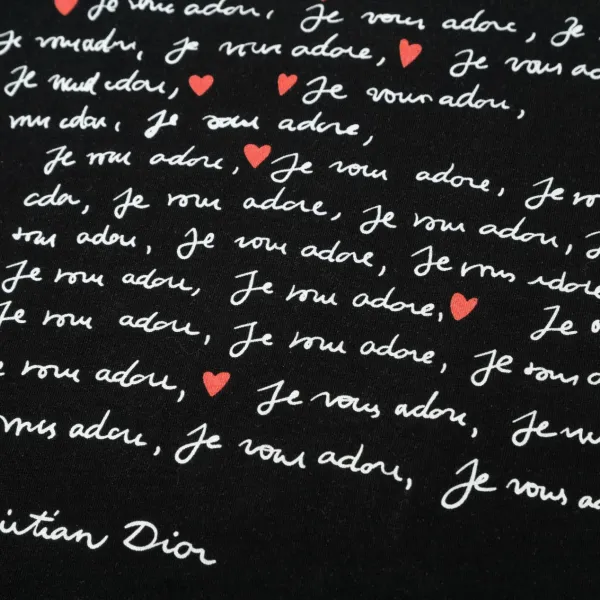 Je vous adore, Je vous adore, Je
Je vous adore, Je vous adore, Je vous ad
Je vous adore, Je vous adore,
adore, Je vous adore,
Je vous adore, Je vous adore, Je vo
Je vous adore, Je vous adore,
vous adore, Je vous adore, Je vous adore
Je vous adore, Je vous adore, Je
Je vous adore, Je vous adore, Je vous a
vous adore, Je vous adore, Je vous
vous adore, Je vous adore, Je vous ad
istian Dior